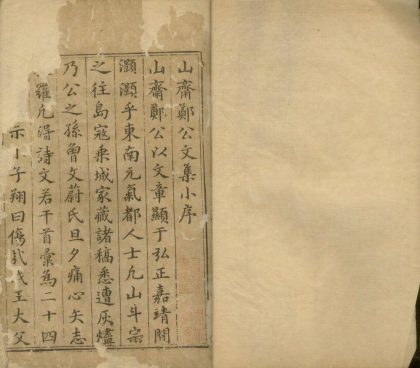 山齋鄭公文集小序
山齋鄭公以文章顯于弘正嘉靖間
灝灝乎東南元氣都人士凢山斗宗
之往島寇乘城家藏諸稿悉遭灰燼
乃公之孫曾文蔚氏旦夕痛心矢志
羅凢得詩文若干首彙為二十四
示小子翔曰傷哉我王大父